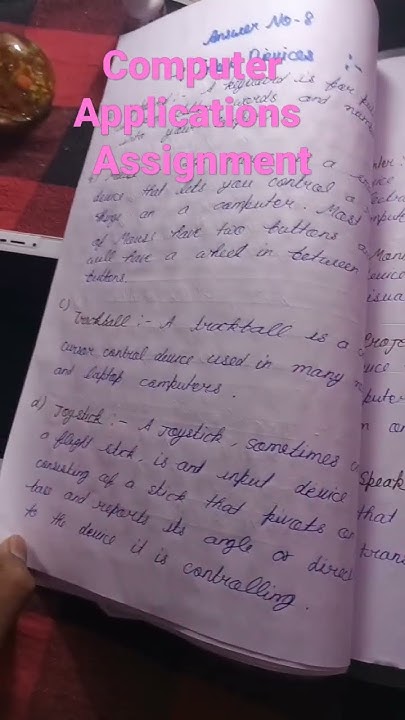 Computer
Applications
Assignment
Answer No-8
Devices :-
:- A keyboard is for
words and num
into your
a
device that lets you control a
things on a computer. Most
of Mouse have two buttons a
will have a wheel in between
buttons.
c) Trackball :- A trackball is a
cursor control device used in many
and laptop computers.
d) Joystick :- A Joystick, sometimes
a flight stick, is an input device
consisting of a stick that pivots on
base and reports its angle or direc
to the device it is controlling.
Speak
that
trans